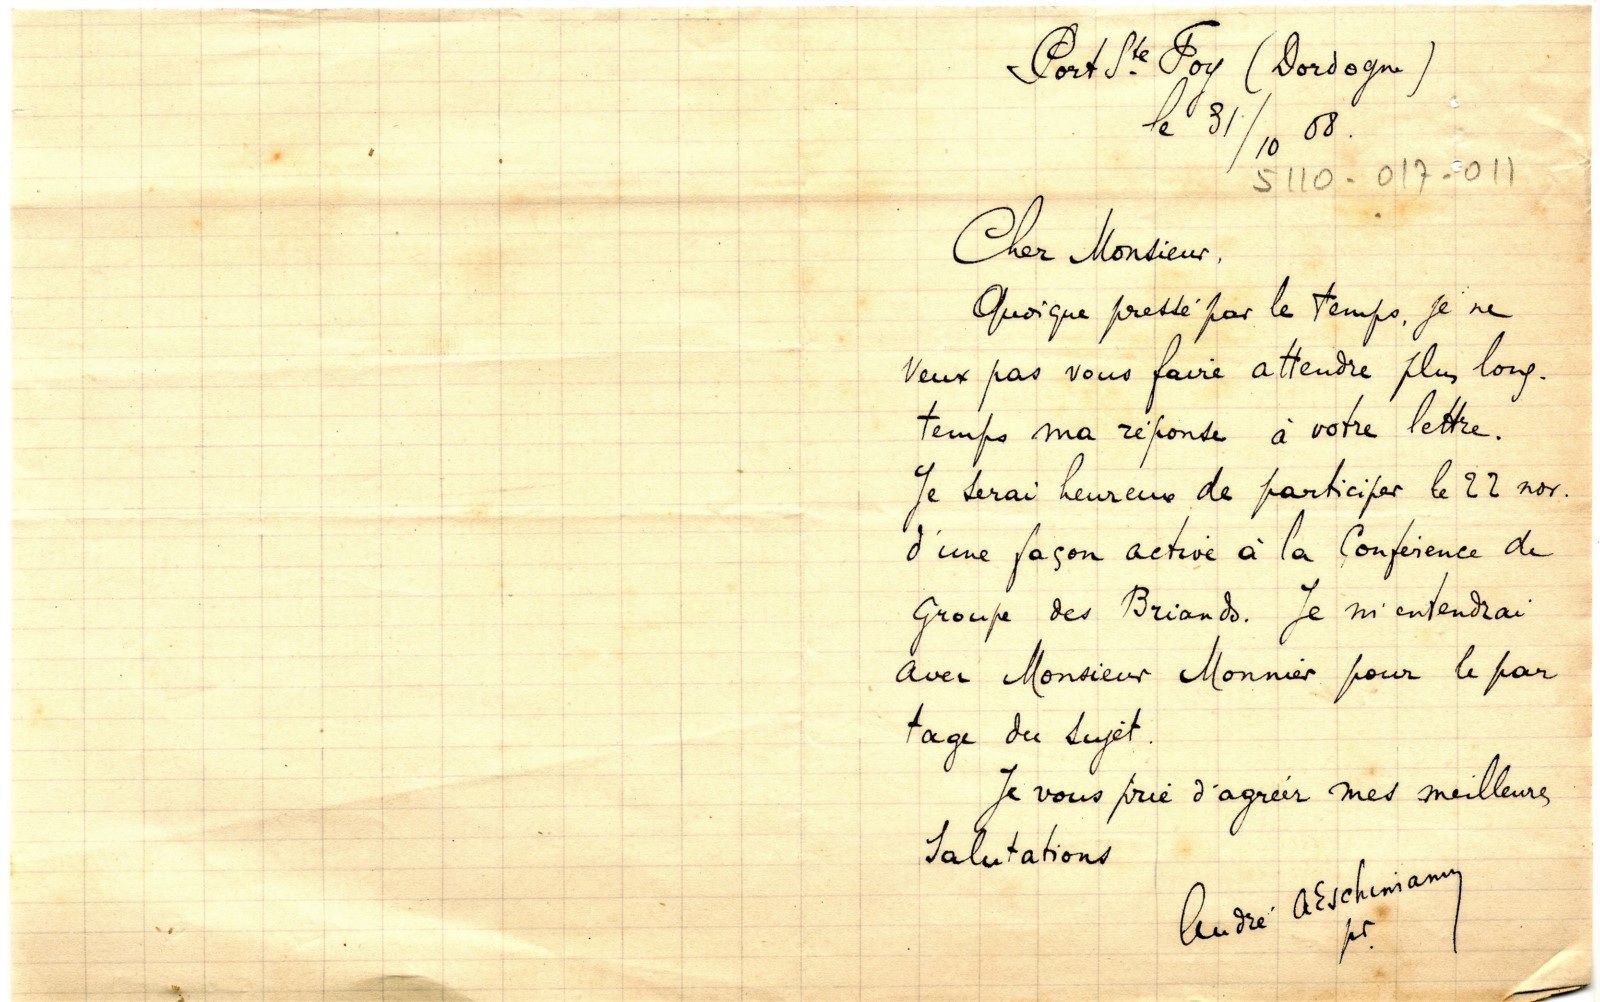 Port Ste Foy (Dordogne)
le 31/10 08.
5110-017-011
Cher Monsieur,
Quoique pressé par le temps, je ne
veux pas vous faire attendre plus long-
temps ma réponse à votre lettre.
Je serai heureux de participer le 22 nov.
d'une façon active à la Conférence de
Groupe des Briands. Je m'entendrai
avec Monsieur Monnier pour le par
tage du sujet.
Je vous prie d'agréer mes meilleures
salutations
André Aeschimann
pr.